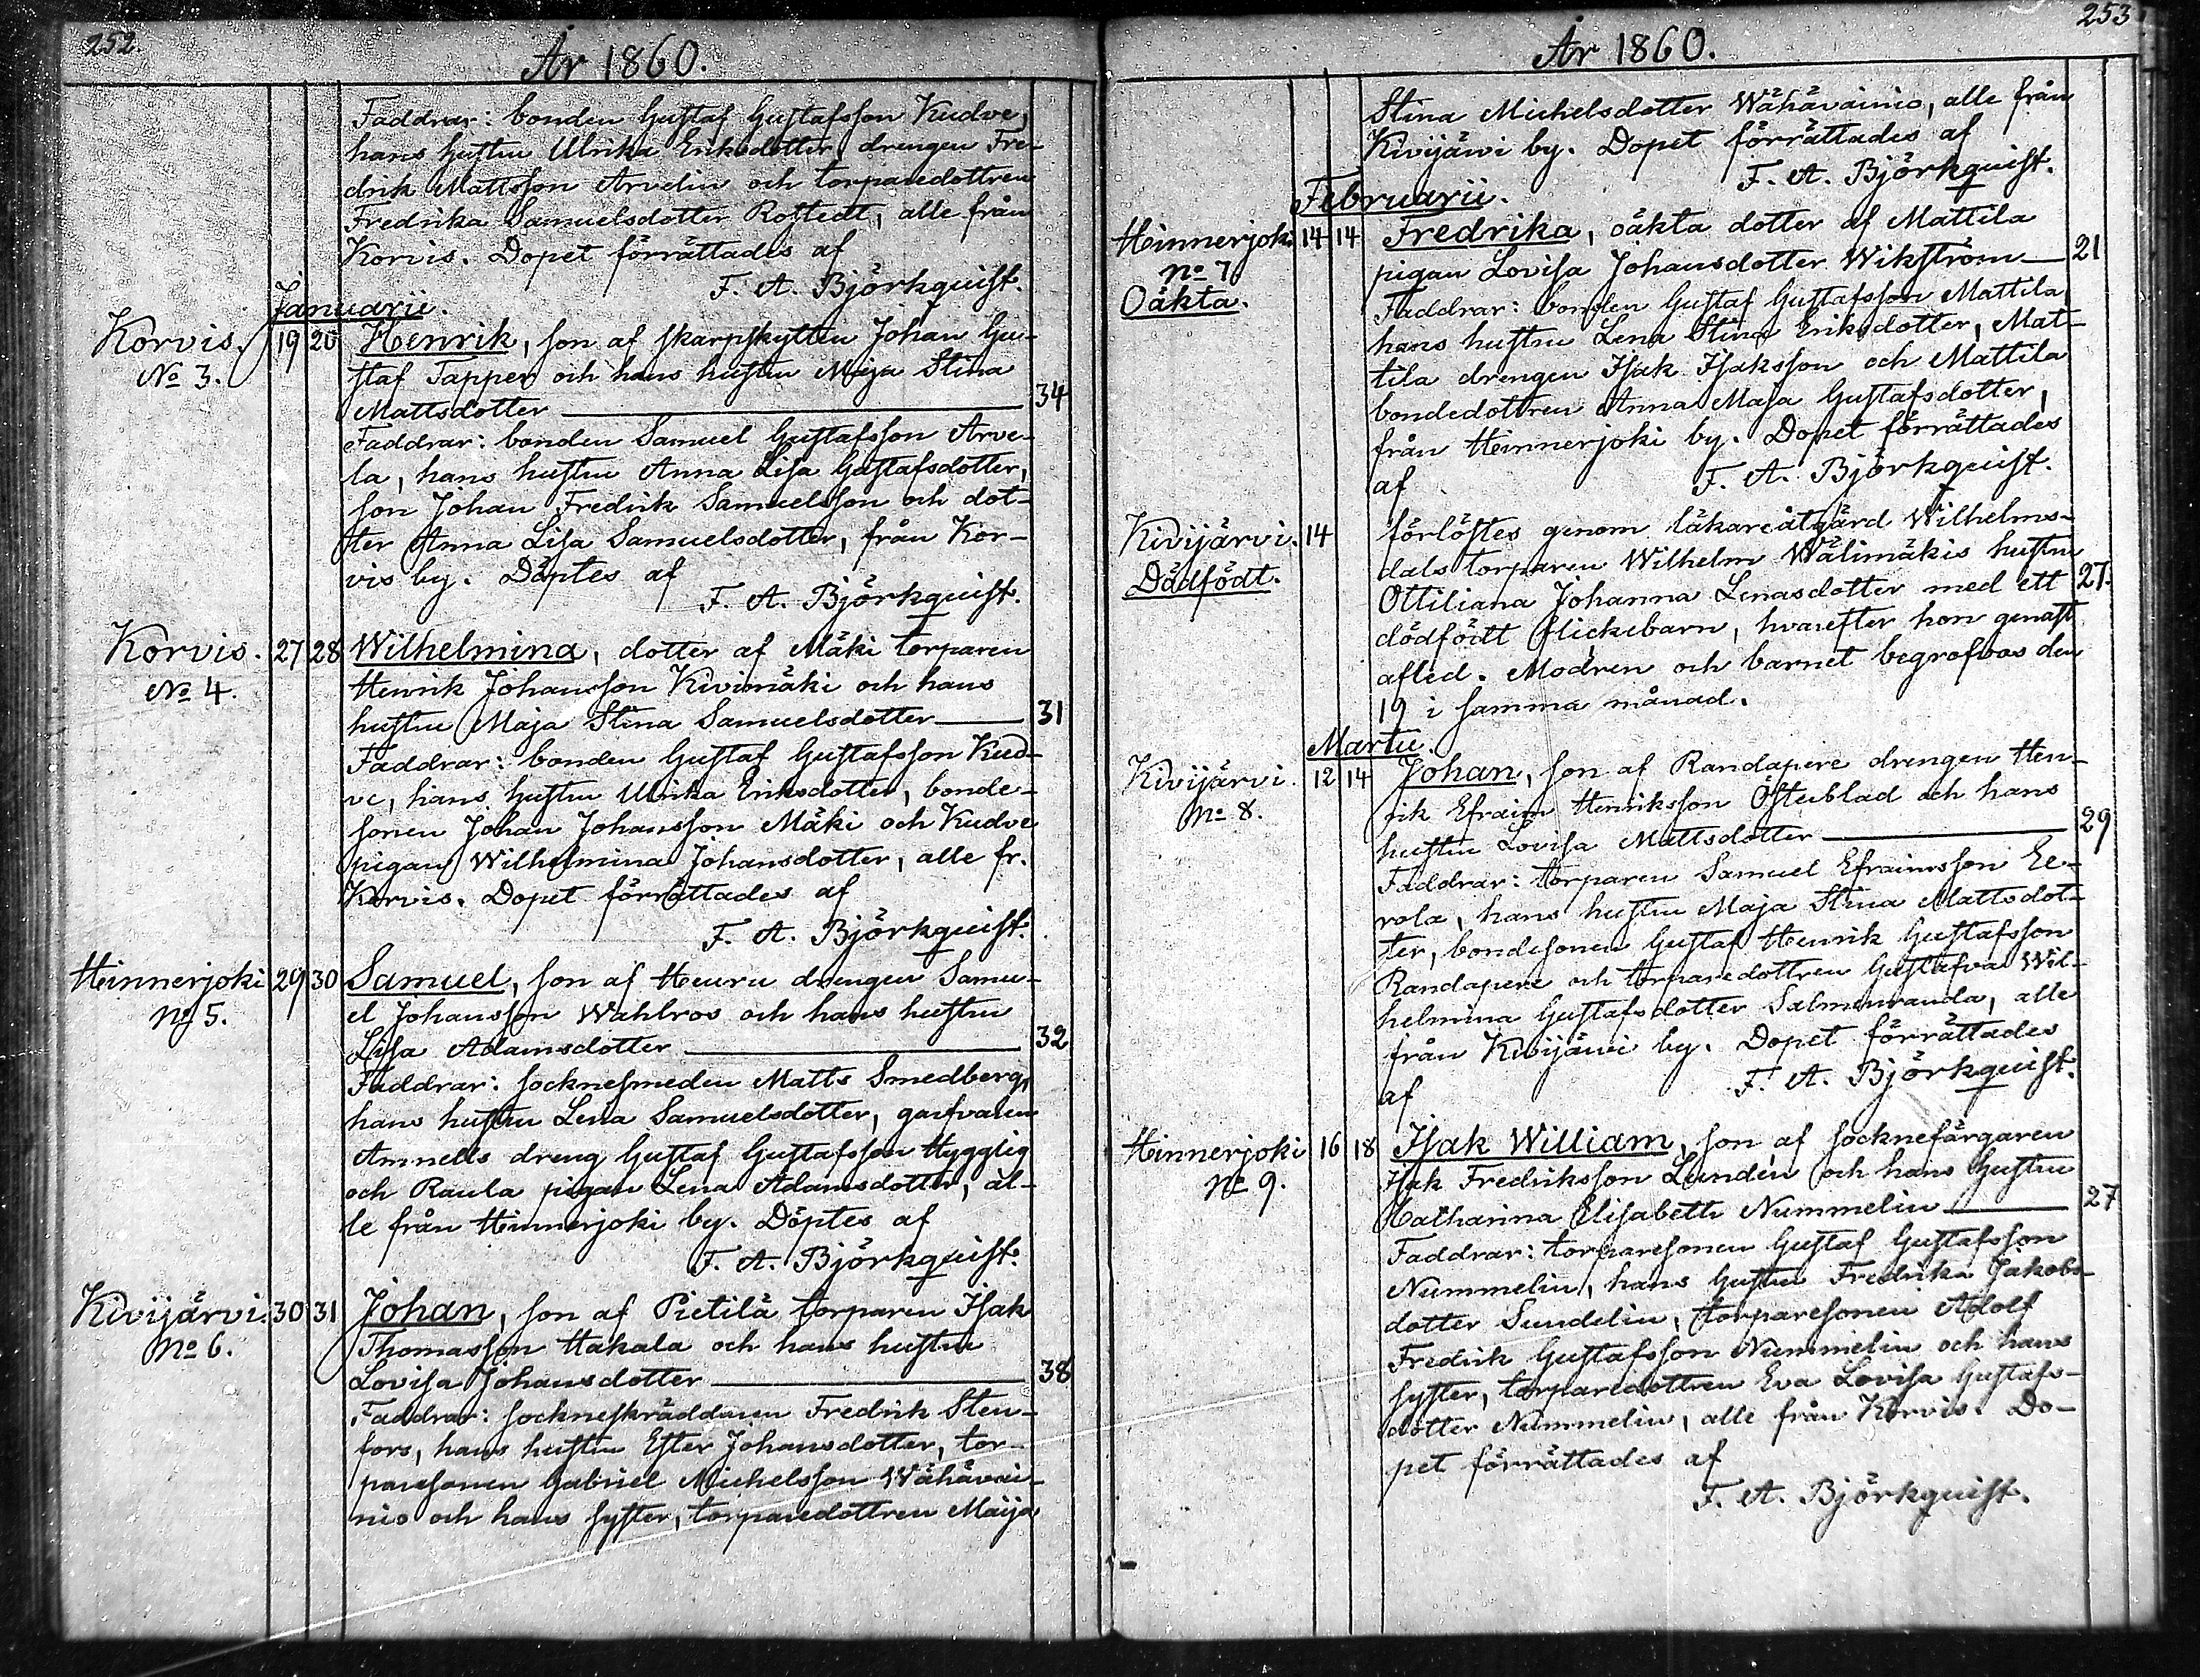 252.
År 1860.
Faddrar: bonden Gustaf Gustafsson Kudve,
hans hustru Ulrika Eriksdotter, drengen Fre-
drik Mattsson Arvelin och torparedottren
Fredrika Samuelsdotter Rostedt, alle från
Korvis. Dopet förrättades af
F. A. Björkquist.
Januarii.
Korvis. 19 20 Henrik, son af skarpskytten Johan Gu-
No 3. staf Tapper och hans hustru Maja Stina
Mattsdotter — 34
Faddrar: bonden Samuel Gustafsson Arve-
la, hans hustru Anna Lisa Gustafsdotter,
son Johan Fredrik Samuelsson och dot-
ter Anna Lisa Samuelsdotter, från Kor-
vis by. Döptes af
F. A. Björkquist.
Korvis. 27 28 Wilhelmina, dotter af Mäki torparen
No 4. Henrik Johansson Kivimäki och hans
hustru Maja Stina Samuelsdotter — 31
Faddrar: bonden Gustaf Gustafsson Kud-
ve, hans hustru Ulrika Eriksdotter, bonde-
sonen Johan Johansson Mäki och Kudve
pigan Wilhelmina Johansdotter, alle fr.
Korvis. Dopet förrättades af
F. A. Björkquist.
Hinnerjoki 29 30 Samuel, son af Heuru drengen Samu-
No 5. el Johansson Wahlros och hans hustru
Lisa Adamsdotter — 32
Faddrar: socknesmeden Matts Smedberg,
hans hustru Lena Samuelsdotter, garfvaren
Amnells dreng Gustaf Gustafsson Hygglig
och Raula pigan Lena Adamsdotter, al-
le från Hinnerjoki by. Döptes af
F. A. Björkquist.
Kivijärvi. 30 31 Johan, son af Pietilä torparen Isak
No 6. Thomasson Hakala och hans hustru
Lovisa Johansdotter — 38
Faddrar: sockneskräddaren Fredrik Sten-
fors, hans hustru Ester Johansdotter, tor-
paresonen Gabriel Michelsson Wähävai-
nio och hans syster, torparedottren Maija
253
År 1860.
Stina Michelsdotter Wähävainio, alle från
Kivijärvi by. Dopet förrättades af
F. A. Björkquist.
Februarii.
Hinnerjoki 14 14 Fredrika, oäkta dotter af Mattila
No 7. pigan Lovisa Johansdotter Wikström — 21
Oäkta. Faddrar: bonden Gustaf Gustafsson Mattila,
hans hustru Lena Stina Eriksdotter, Mat-
tila drengen Isak Isaksson och Mattila
bondedottren Anna Maja Gustafsdotter,
från Hinnerjoki by. Dopet förrättades
af F. A. Björkquist.
Kivijärvi. 14 förlöstes genom läkareåtgärd Wilhelms-
Dödfödt. dals torparen Wilhelm Wälimäkis hustru
Ottiliana Johanna Lenasdotter med ett 27.
dödfödt flickebarn, hvarefter hon genast
afled. Modren och barnet begrofvos den
19 i samma månad.
Martii.
Kivijärvi 12 14 Johan, son af Randapere drengen Hen-
No 8. rik Efraim Henriksson Österblad och hans
hustru Lovisa Mattsdotter — 29
Faddrar: torparen Samuel Efraimsson Ee-
rola, hans hustru Maja Stina Mattsdot-
ter, bondesonen Gustaf Henrik Gustafsson
Randapere och torparedottren Gustafva Wil-
helmina Gustafsdotter Salmenranda, alle
från Kivijärvi by. Dopet förrättades
af F. A. Björkquist.
Hinnerjoki 16 18 Isak William, son af socknefärgaren
No 9. Isak Fredriksson Lundén och hans hustru
Katharina Elisabeth Nummelin — 27
Faddrar: torparesonen Gustaf Gustafsson
Nummelin, hans hustru Fredrika Jakobs-
dotter Sundelin, torparesonen Adolf
Fredrik Gustafsson Nummelin och hans
syster, torparedottren Eva Lovisa Gustafs-
dotter Nummelin, alle från Korvis. Do-
pet förrättades af
F. A. Björkquist.